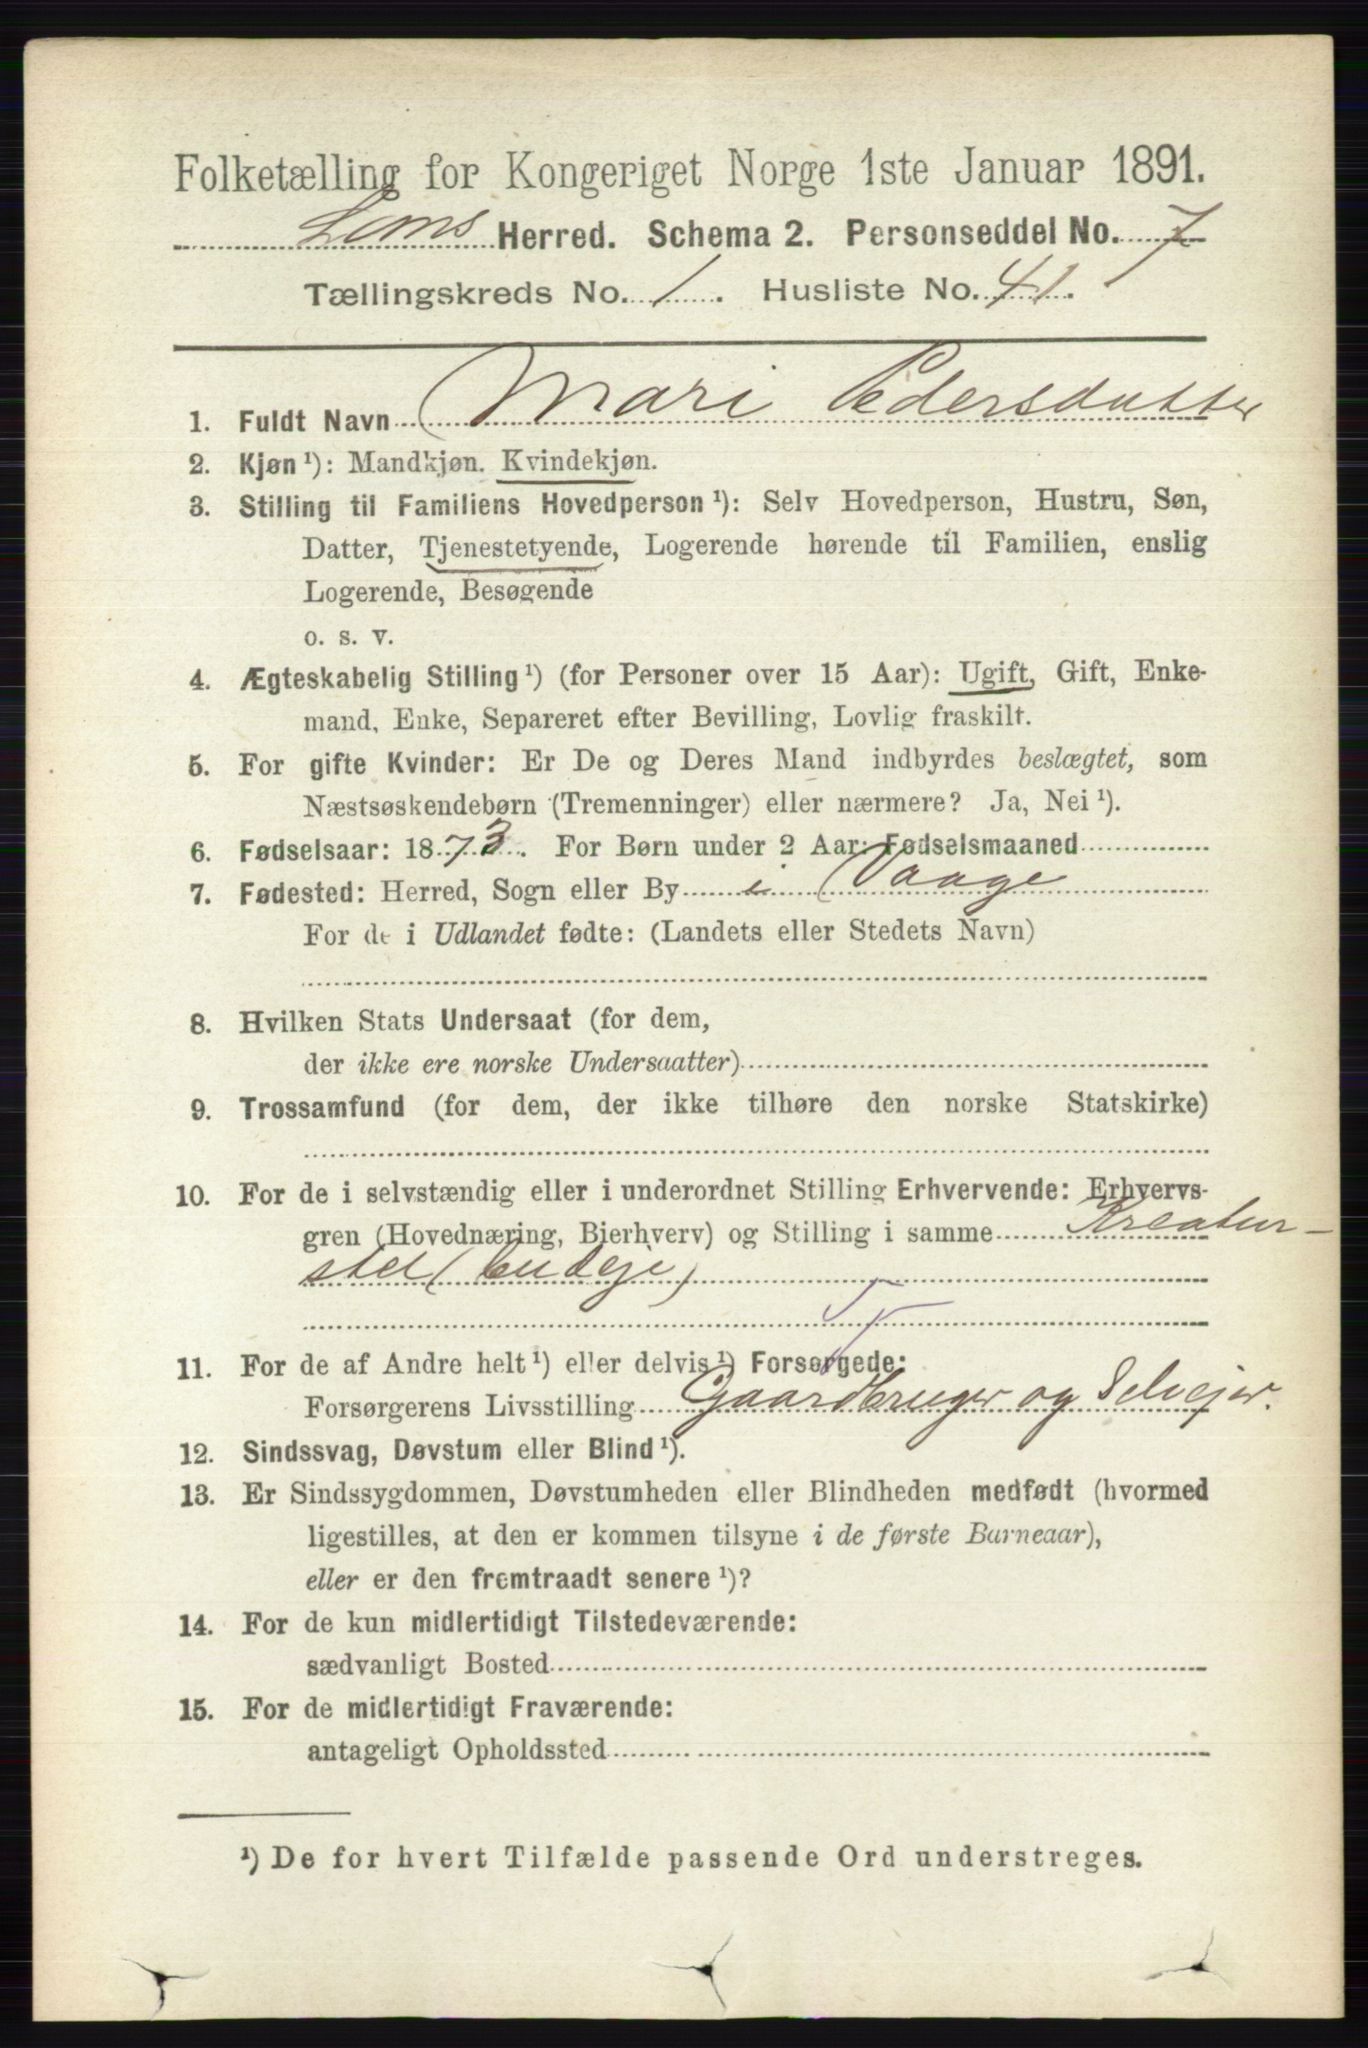 Folketælling for Kongeriget Norge 1ste Januar 1891.
Loms Herred. Schema 2. Personseddel No. 7
Tællingskreds No. 1. Husliste No. 41.
1. Fuldt Navn Mari Pedersdatter
2. Kjøn ¹): Mandkjøn. Kvindekjøn.
3. Stilling til Familiens Hovedperson ¹): Selv Hovedperson, Hustru, Søn,
Datter, Tjenestetyende, Logerende hørende til Familien, enslig
Logerende, Besøgende
o. s. v.
4. Ægteskabelig Stilling ¹) (for Personer over 15 Aar): Ugift, Gift, Enke-
mand, Enke, Separeret efter Bevilling, Lovlig fraskilt.
5. For gifte Kvinder: Er De og Deres Mand indbyrdes beslægtet, som
Næstsøskendebørn (Tremenninger) eller nærmere? Ja, Nei ¹).
6. Fødselsaar: 1873. For Børn under 2 Aar: Fødselsmaaned
7. Fødested: Herred, Sogn eller By i Vaage
For de i Udlandet fødte: (Landets eller Stedets Navn)
8. Hvilken Stats Undersaat (for dem,
der ikke ere norske Undersaatter)
9. Trossamfund (for dem, der ikke tilhøre den norske Statskirke)
10. For de i selvstændig eller i underordnet Stilling Erhvervende: Erhvervs-
gren (Hovednæring, Bierhverv) og Stilling i samme Kreatur-
stel (Budeje)
11. For de af Andre helt ¹) eller delvis ¹) Forsørgede:
Forsørgerens Livsstilling Gaardbruger og Selvejer.
12. Sindssvag, Døvstum eller Blind ¹).
13. Er Sindssygdommen, Døvstumheden eller Blindheden medfødt (hvormed
ligestilles, at den er kommen tilsyne i de første Barneaar),
eller er den fremtraadt senere ¹)?
14. For de kun midlertidigt Tilstedeværende:
sædvanligt Bosted
15. For de midlertidigt Fraværende:
antageligt Opholdssted
¹) De for hvert Tilfælde passende Ord understreges.